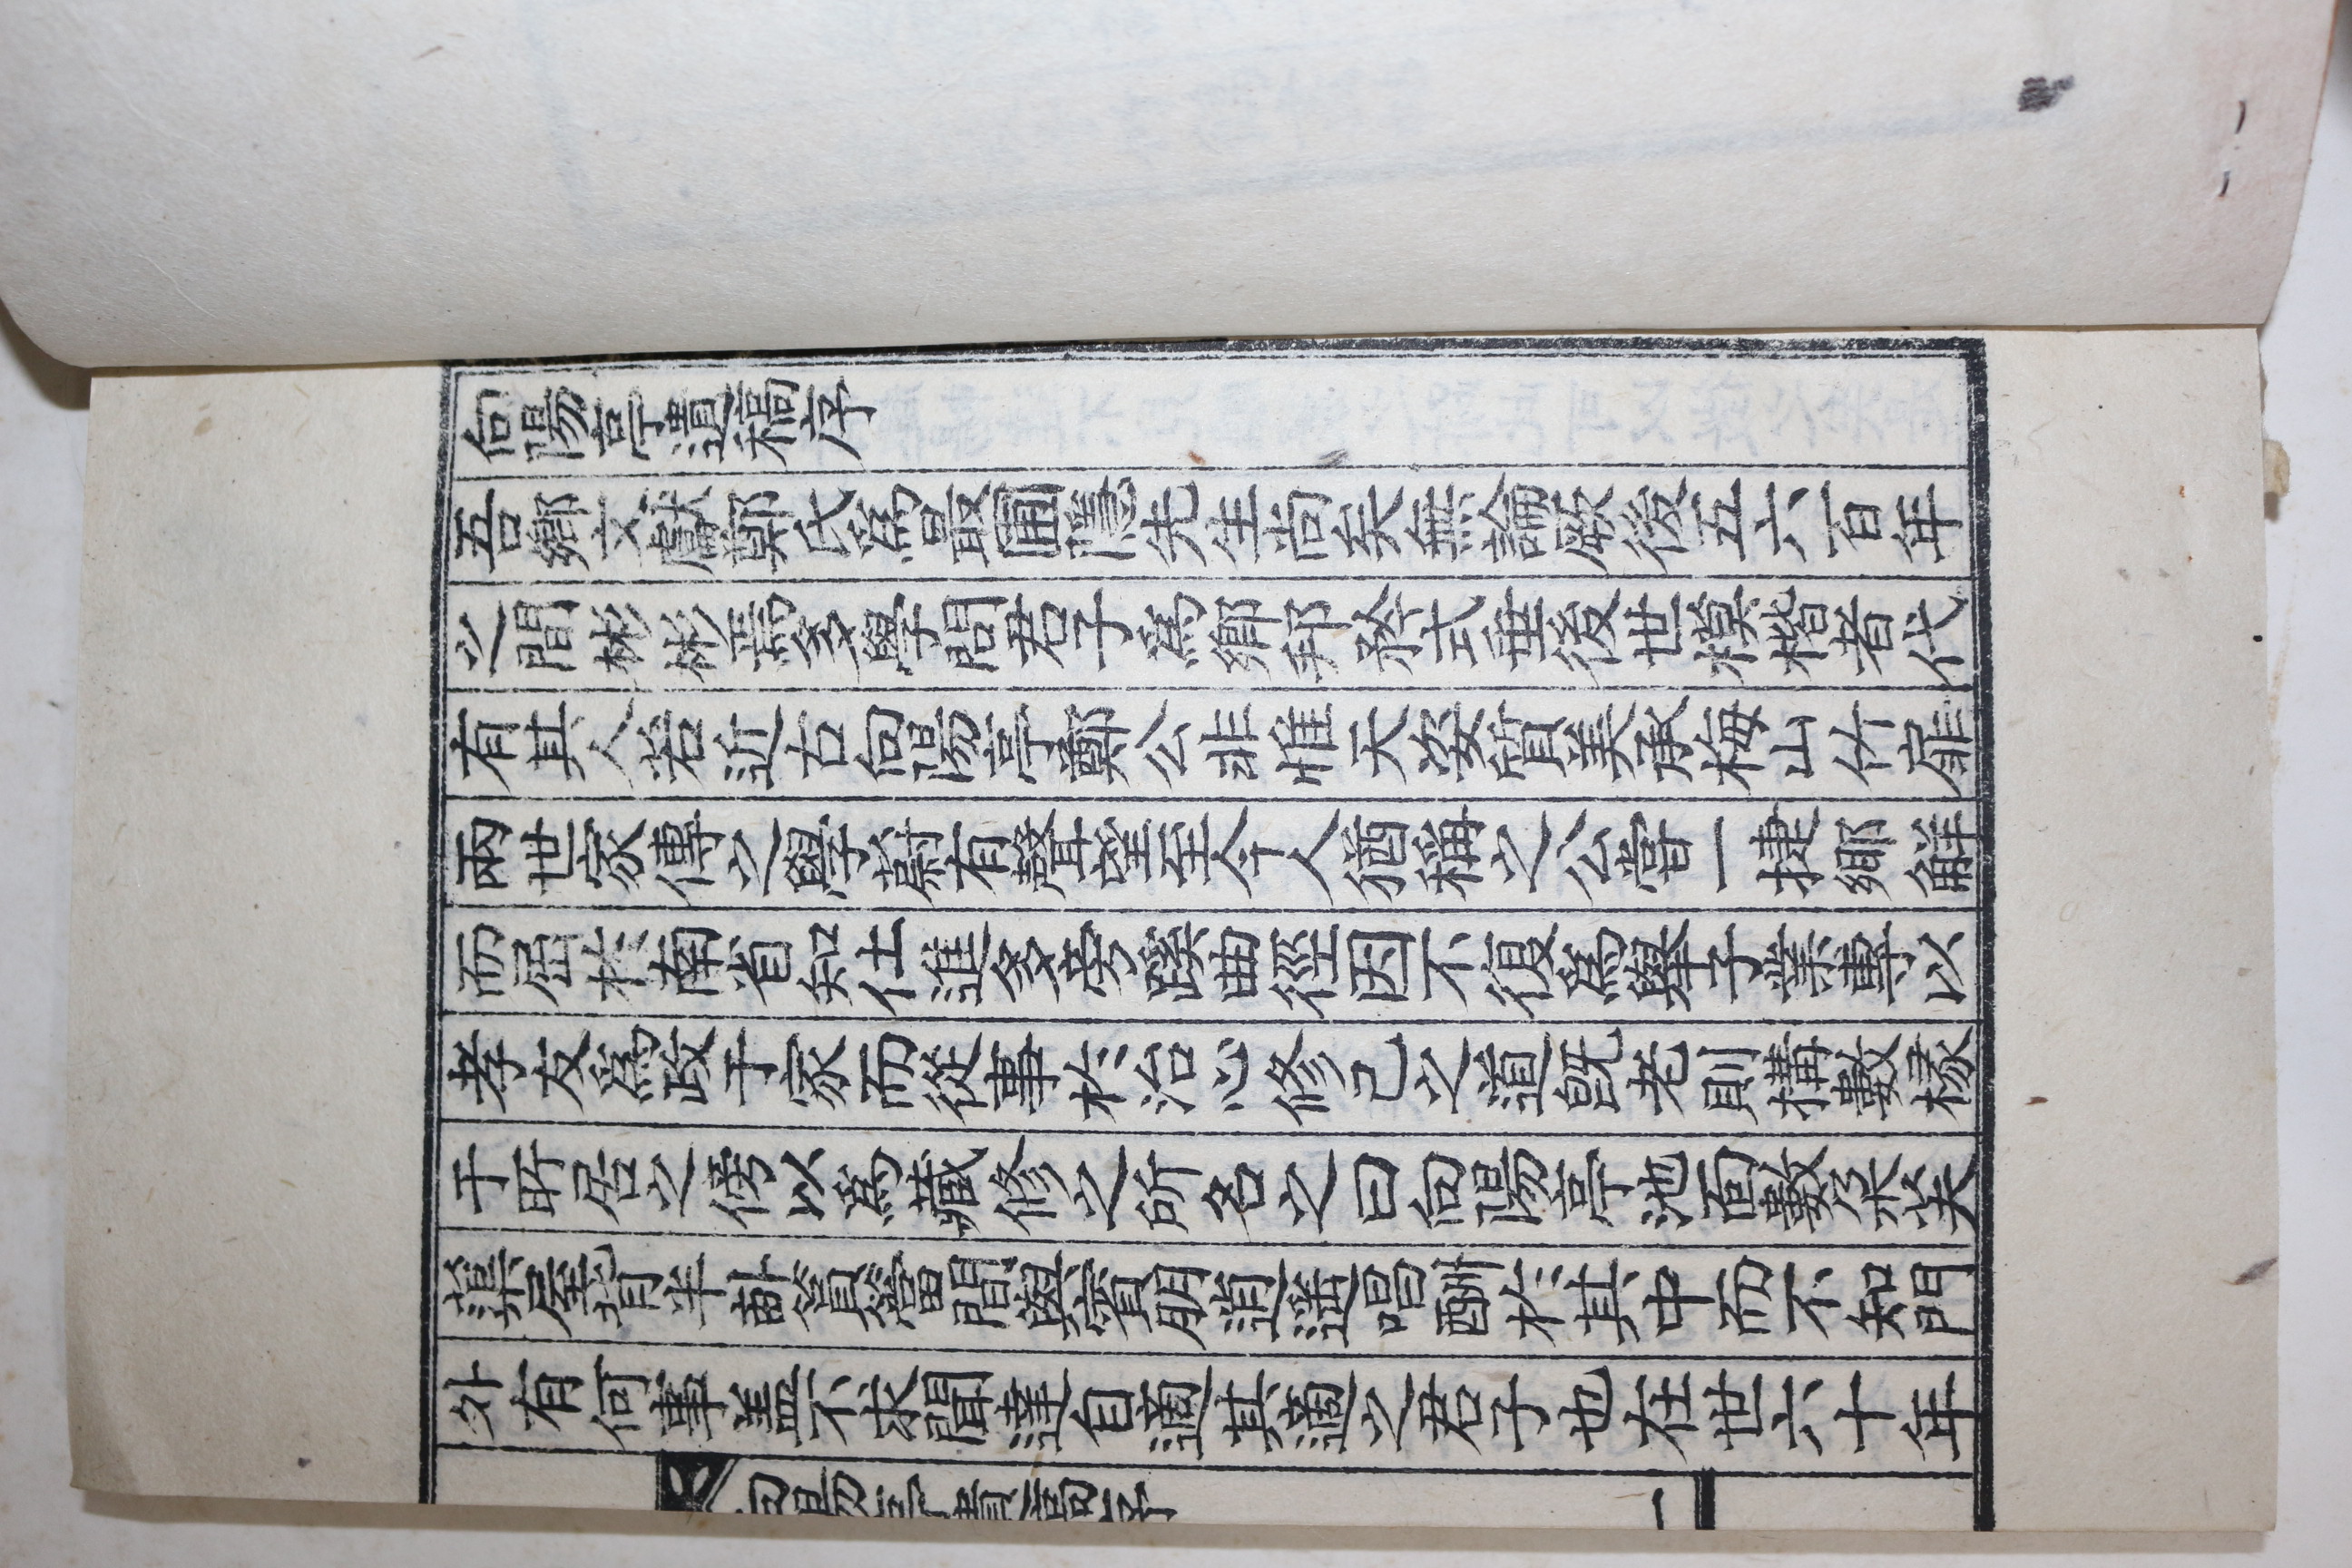 向陽亭遺稿序
吾鄉文獻鄭氏爲最圃隱先生尚矣無論厥後五六百年
之間彬彬焉多學問君子爲鄉邦矜式垂後世模楷者代
有其人若近古向陽亭鄭公非惟天姿質美承梅山竹扉
兩世家傳之學蔚有聲望至今人猶稱之公嘗一捷鄉解
而屈於南省知仕進多旁蹊曲徑因不復爲擧子業專以
孝友爲政于家而從事於治心修己之道旣老則搆數椽
于所居之傍以爲藏修之所名之曰向陽亭池面數朶芙
蕖屋背半畝篔簹間與賓朋逍遥唱酬於其中而不知門
外有何事盖不求聞達自適其適之君子也在世六十年
向陽亭遺稿序
一